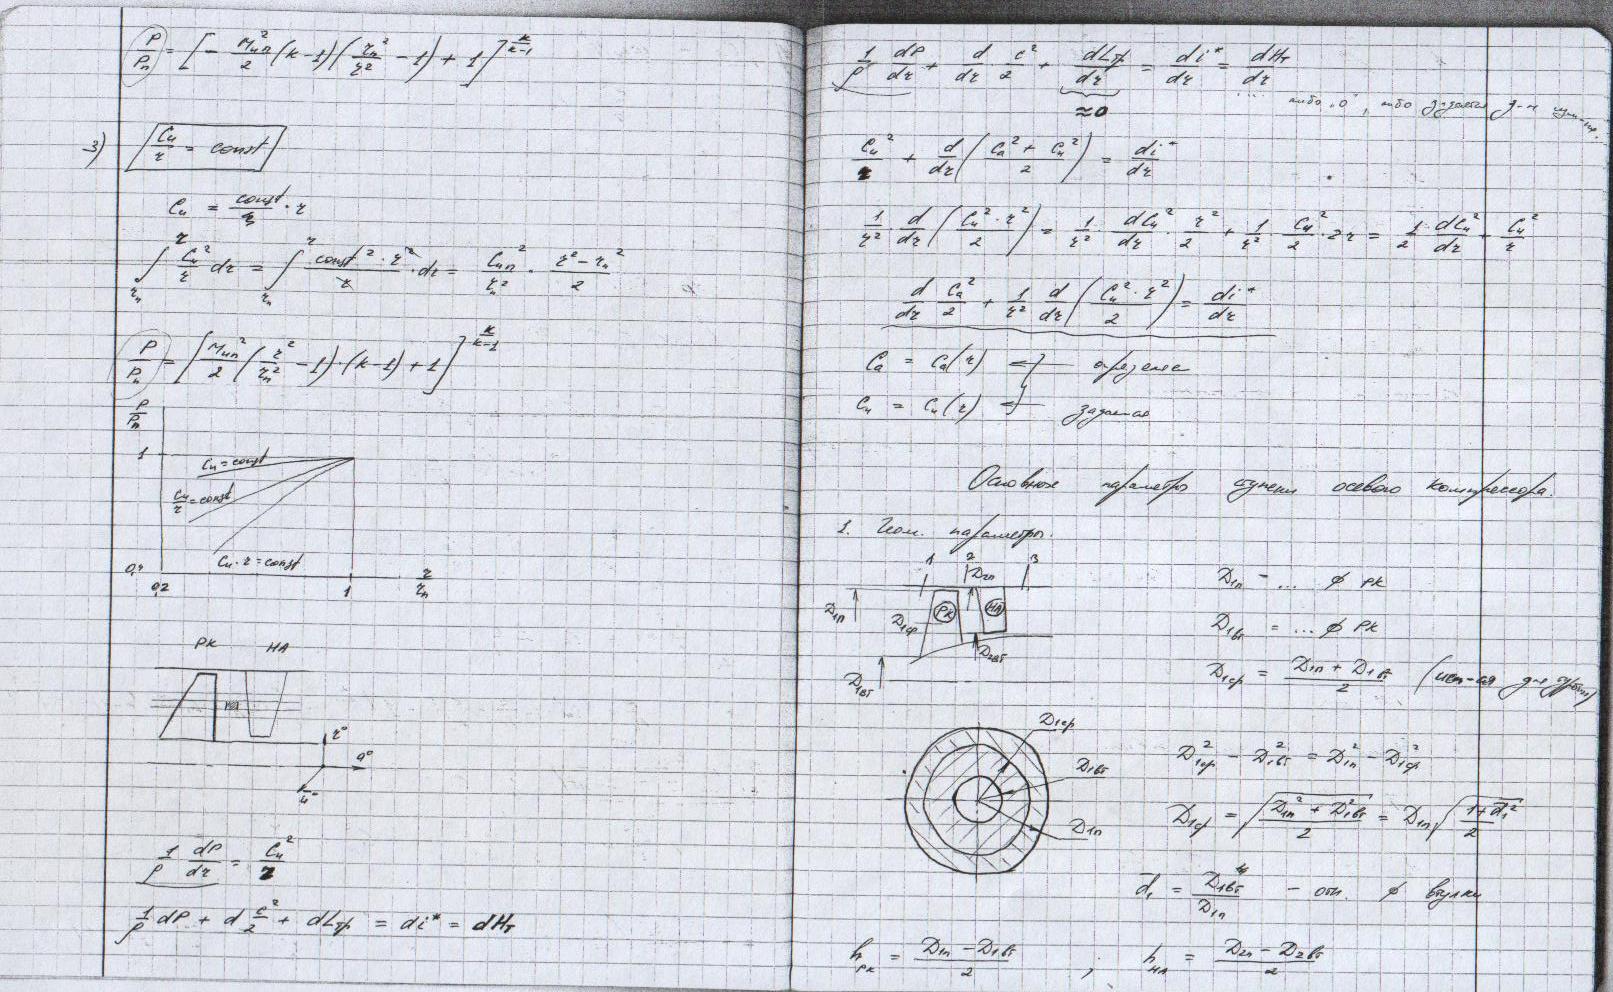 P/Pп = [- Mип²/2 (k-1)(rп²/r² - 1) + 1]^(k/(k-1))
3) Cu/r = const
Cu = const/r · r
∫ Cu²/r dr = ∫ const²·r²/r · dr = Cuп²/rп² · (r² - rп²)/2
P/Pп = [Mип²/2 (r²/rп² - 1)·(k-1) + 1]^(k/(k-1))
P/Pп
1
Cu = const
Cu/r = const
Cu·r = const
0,2
1
r/rп
РК НА
r°
a°
u°
1/ρ dP/dr = Cu²/r
1/ρ dP + d c²/2 + dLтр = di* = dHт
1/ρ dP/dr + d/dr c²/2 + dLтр/dr = di*/dr = dHт/dr
≈0
либо „0", либо задается
Cu²/r + d/dr((Ca² + Cu²)/2) = di*/dr
1/r² · d/dr(Cu²·r²/2) = 1/r² · dCu²/dr · r²/2 + 1/r² · Cu²/2 · 2r = 1/2 · dCu²/dr + Cu²/r
d/dr Ca²/2 + 1/r² d/dr(Cu²·r²/2) = di*/dr
Ca = Ca(r)
Cu = Cu(r)
Основные параметры ступени осевого компрессора.
1. Геом. параметры.
1 2 3
D2п
D1п
D1ср
РК
НА
D2вт
D1вт
D1п - ... ϕ РК
D1вт = ... ϕ РК
D1ср = (D1п + D1вт)/2
D1ср
D1вт
D1п
D1ср² - D1вт² = D1п² - D1ср²
D1ср = √((D1п² + D1вт²)/2) = D1п √((1+d̄1²)/2)
d̄1 = D1вт/D1п - отн. ϕ втулки
hРК = (D1п - D1вт)/2 ; hНА = (D2п - D2вт)/2